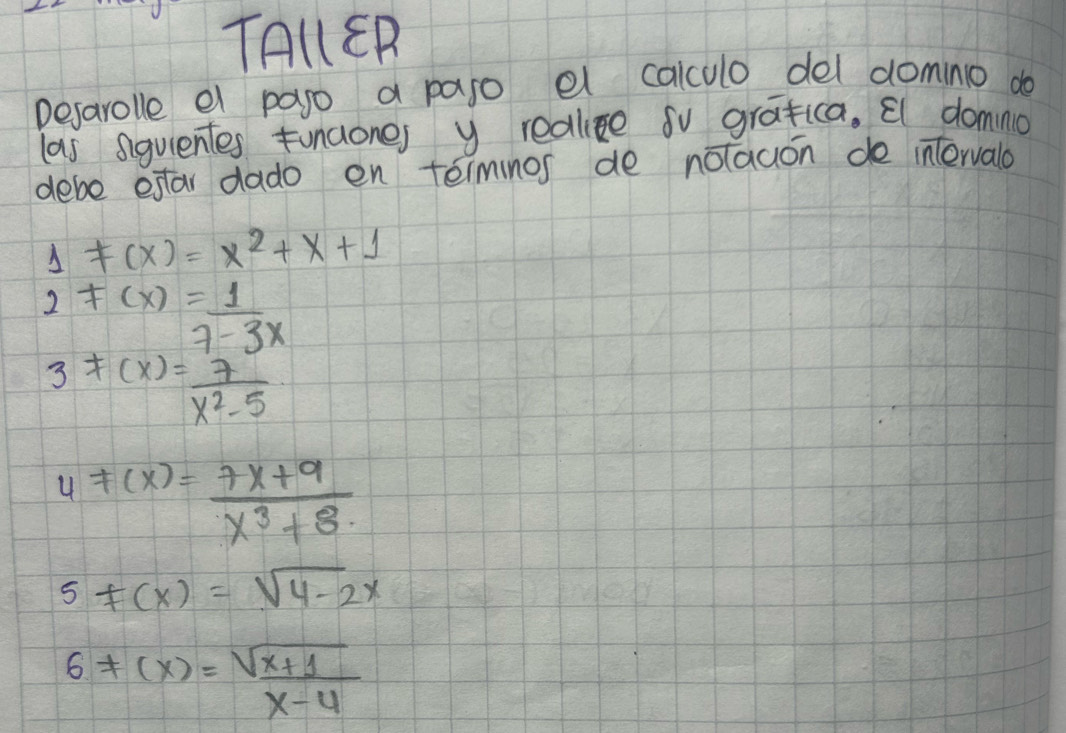 TALLER
Desarolle el paso a paso el calculo del dominio de
las siguientes funciones y realize su gráfica. El dominio
debe estar dado en términos de notación de intervalo
1 f(x) = x² + x + 1
2 f(x) = 1
7 - 3x
3 f(x) = 7
x² - 5
4 f(x) = 7x + 9
x³ + 8
5 f(x) = √4-2x
6 f(x) = √x+1
x - 4